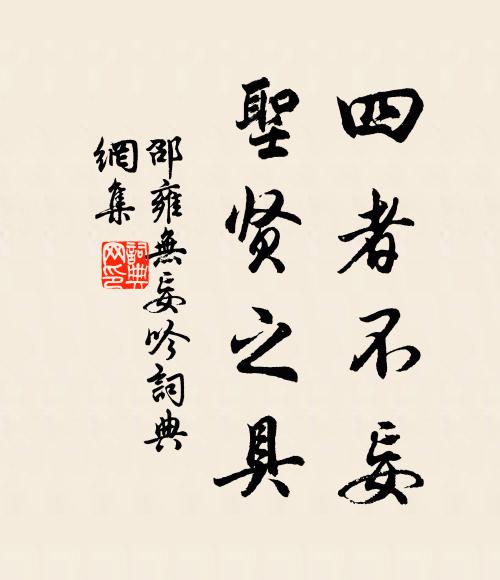 四者不妄
聖贤之具
邵雍無妄吟詞典
網集
詞典网印